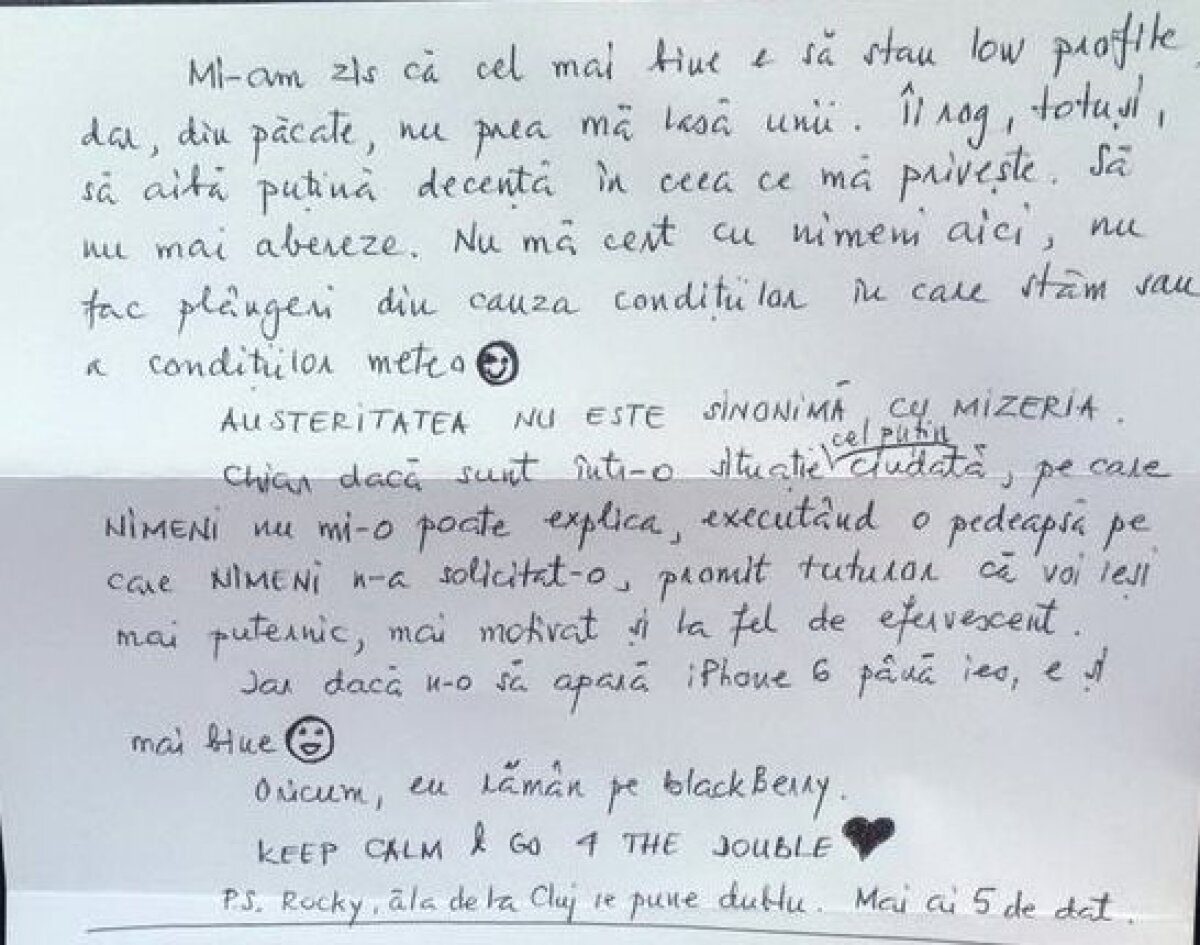 Mi-am zis că cel mai bine e să stau low profile,
dar, din păcate, nu prea mă lasă unii. Îi rog, totuși,
să aibă puțină decență în ceea ce mă privește. Să
nu mai abereze. Nu mă cert cu nimeni aici, nu
fac plângeri din cauza condițiilor în care stăm sau
a condițiilor meteo ☺
AUSTERITATEA NU ESTE SINONIMĂ CU MIZERIA.
cel puțin
Chiar dacă sunt într-o situație ciudată, pe care
NIMENI nu mi-o poate explica, executând o pedeapsă pe
care NIMENI n-a solicitat-o, promit tuturor că voi ieși
mai puternic, mai motivat și la fel de efervescent.
Iar dacă n-o să apară iPhone 6 până ies, e și
mai bine ☺
Oricum, eu rămân pe blackBerry.
KEEP CALM & GO 4 THE DOUBLE ♥
P.S. Rocky, ăla de la Cluj se pune dublu. Mai ai 5 de dat.